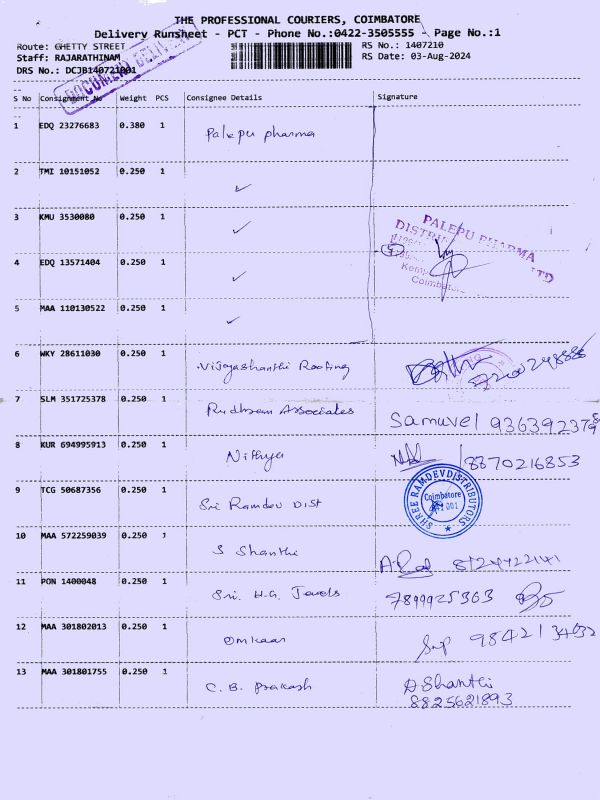 THE PROFESSIONAL COURIERS, COIMBATORE
Delivery Runsheet - PCT - Phone No.:0422-3505555 - Page No.:1
Route: GHETTY STREET RS No.: 1407210
Staff: RAJARATHINAM RS Date: 03-Aug-2024
DRS No.: DCJB140721001
DOCUMENT DELIVERY
S No Consignment No Weight PCS Consignee Details Signature
1 EDQ 23276683 0.380 1 Palepu pharma
2 TMI 10151052 0.250 1 ✓
3 KMU 3530080 0.250 1 ✓
PALEPU PHARMA
4 EDQ 13571404 0.250 1 ✓ 5
Coimbat
5 MAA 110130522 0.250 1 ✓
6 WKY 28611030 0.250 1 Vijayashanthi Roofing
7 SLM 351725378 0.250 1 Rudhram Associates Samuvel
8 KUR 694995913 0.250 1 Nithya 8870216853
9 TCG 50687356 0.250 1 Sri Ramdev Dist
SHREE RAMDEV DISTRIBUTORS
Coimbatore
10 MAA 572259039 0.250 1 S Shanthi 8124422141
11 PON 1400048 0.250 1 Sri. H.G. Jewels 7899925363
12 MAA 301802013 0.250 1 Omkaar
13 MAA 301801755 0.250 1 C. B. Prakash A. Shanthi
8825621893